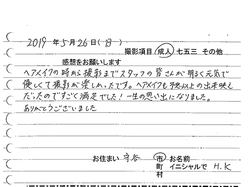 2019年 5月26日(日)
撮影項目 成人 七五三 その他
感想をお願いします
ヘアメイクの時から撮影までスタッフの皆さんが明るく元気で
優しくて撮影が楽しかったです。ヘアメイクも予想以上の出来映え
だったのですごく満足でした!一生の思い出になりました。
ありがとうございました
お住まい 守谷 市 お名前
町 イニシャルで H.K
村